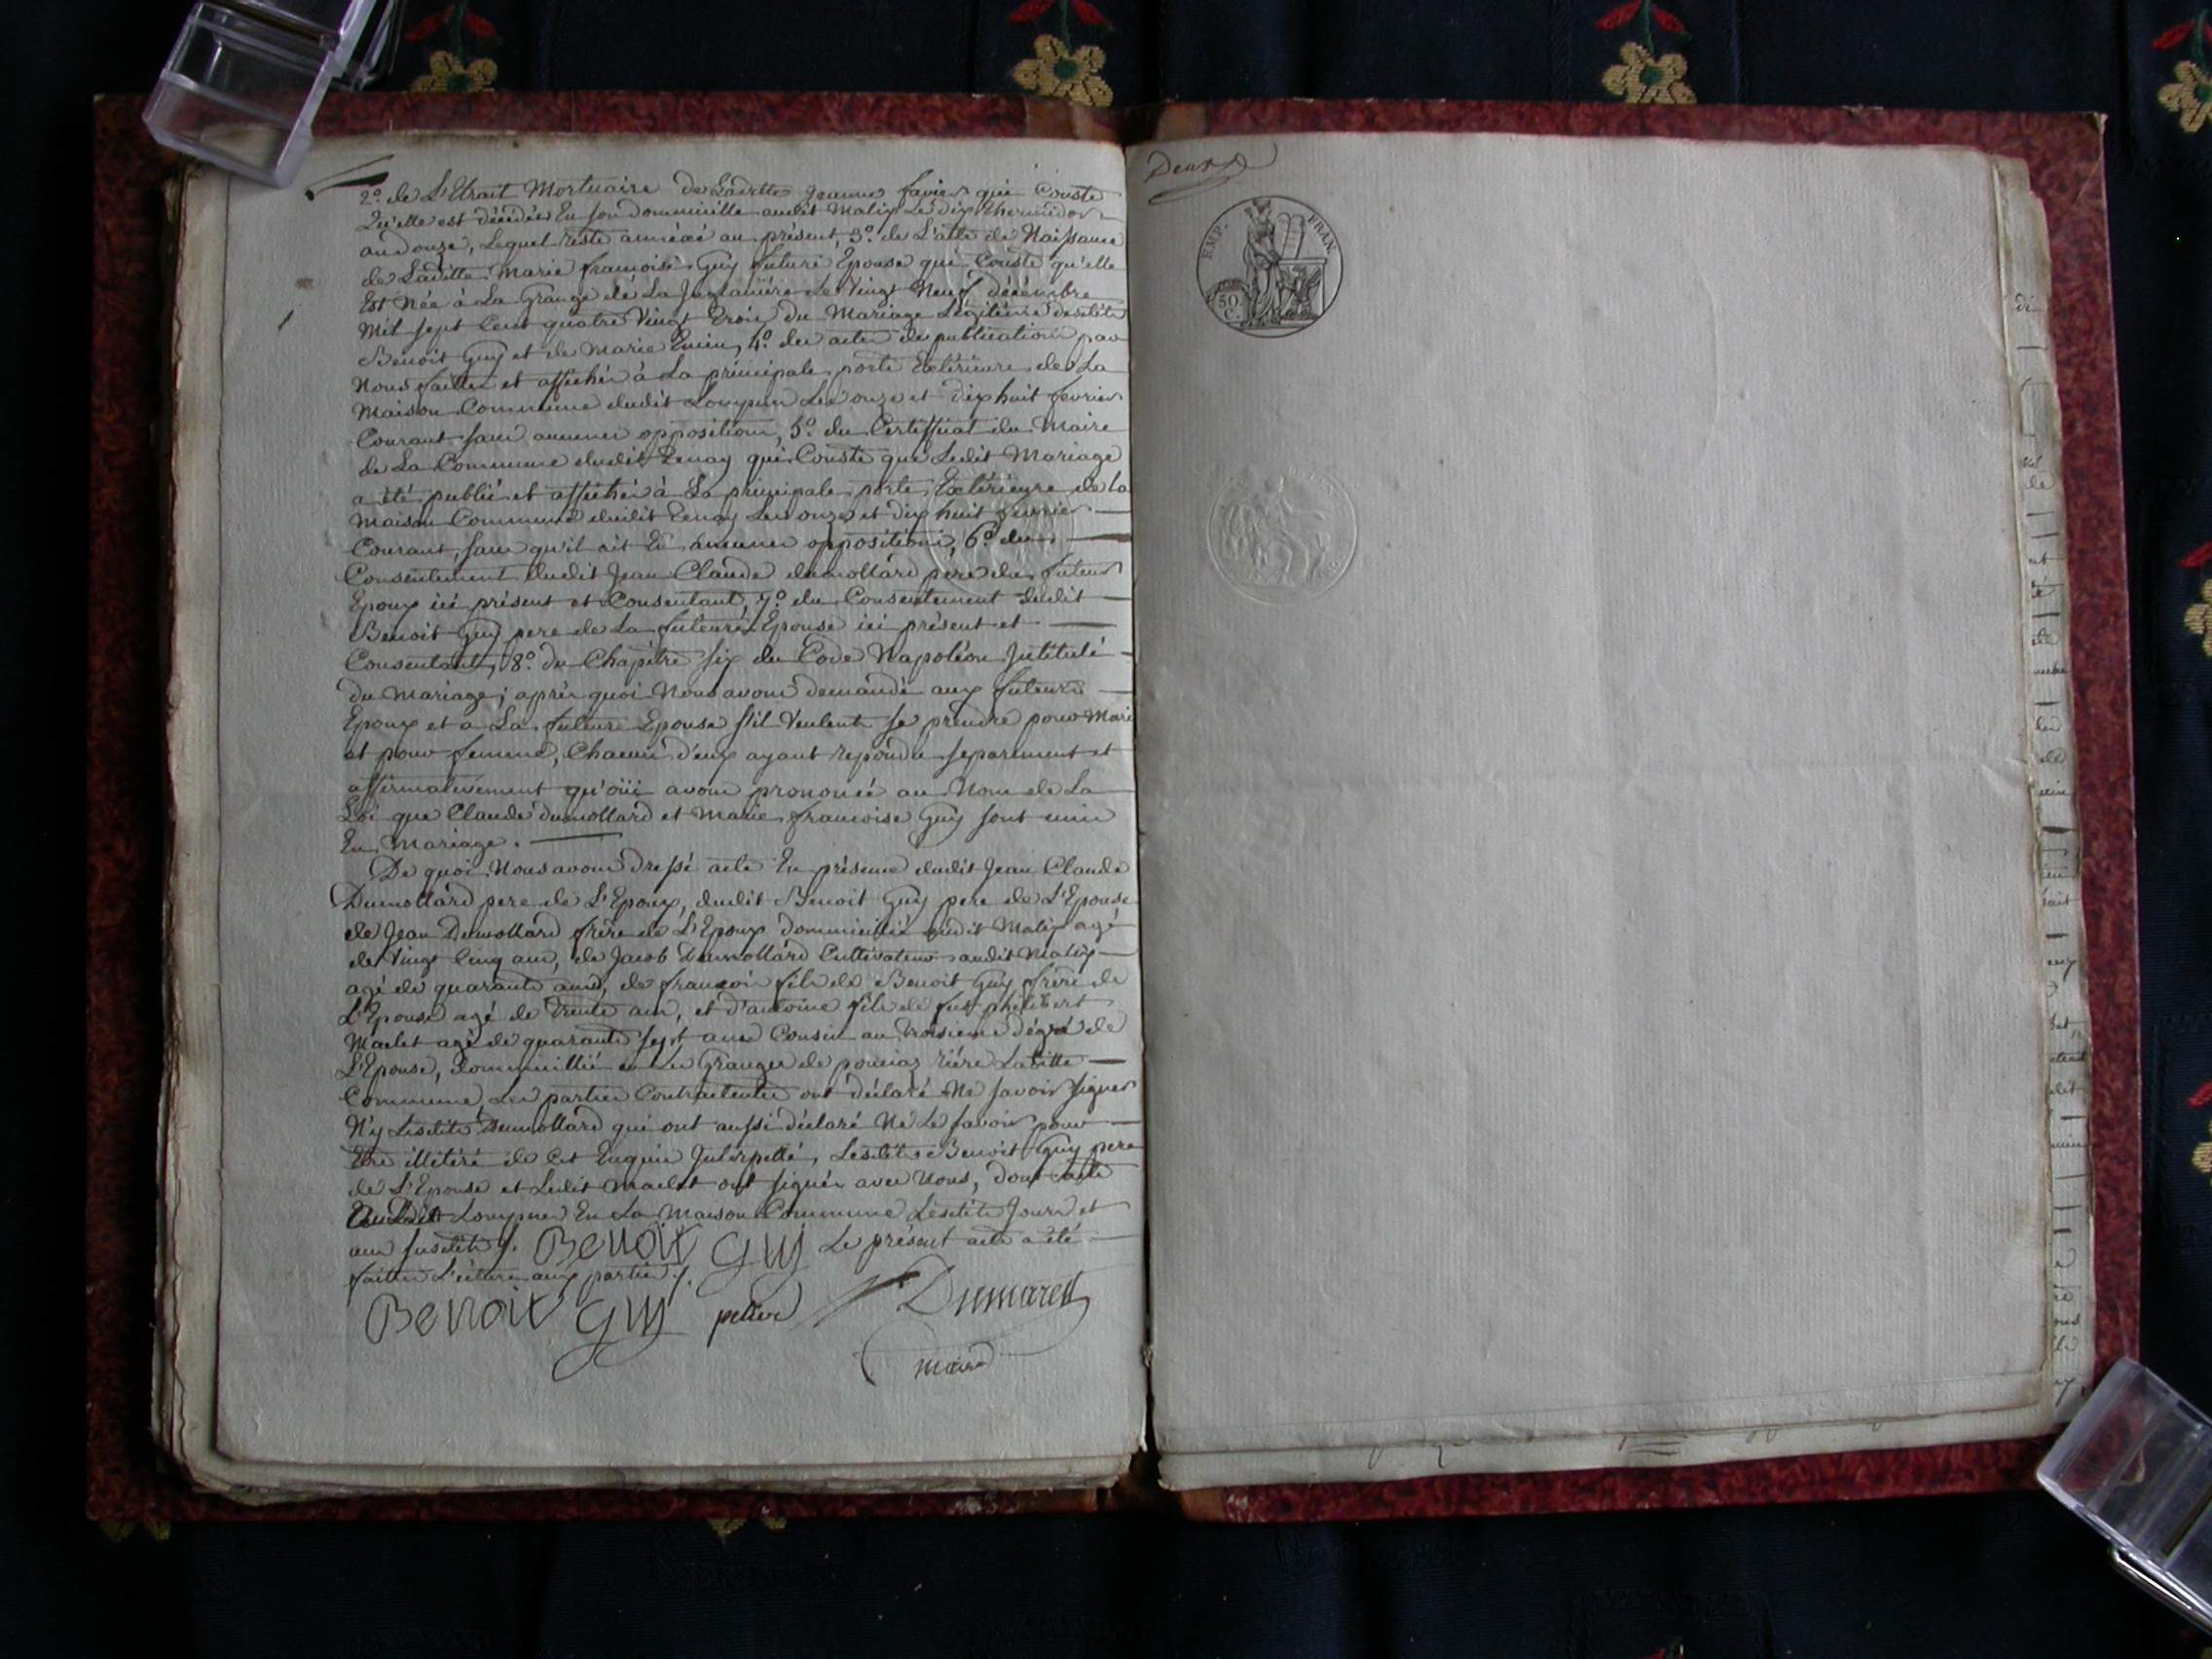 2º. de L'Etrait Mortuaire de Laditte Jeanne favier qui Conste
Qu'elle est décédée En son dommicille audit Matix Le dix thermidor
an douze, Lequel reste annéxé au présent, 3º. de L'acte de Naissance
de Laditte Marie francoise Guy future Epouse qui Conste qu'elle
Est Née à La Grange de La Le Vingt Neuf décémbre
Mil sept Cent quatre Vingt trois du Mariage Légitime desdits
Benoit Guy et de Marie 4º. des actes de publications par
Nous faittes et affichés à La principale porte Extérieure de La
Maison Commune dudit Lompnes Les onze et dix huit fevrier
Courant sans aucunes oppositions, 5º. du Certifficat du Maire
de La Commune dudit Tenay qui Conste que Ledit Mariage
a été publié et affiché à La principale porte Extérieure de la
Maison Commune dudit Tenay Les onze et dix huit fevrier
Courant, sans qu'il ait Eû aucunes oppositions, 6º. du
Consentement dudit Jean Claude dumollard pere du futeur
Epoux ici présent et Consentant, 7º. du Consentement dudit
Benoit Guy pere de La futeure Epouse ici présent et
Consentant, 8º. du Chapitre six du Code Napoléon Intitulé
du Mariage; après quoi Nous avons demandé aux futeurs
Epoux et a La futeure Epouse s'il Veulent se prendre pour Mari
et pour femme, Chacuns d'eux ayant repondu separement et
affirmativement qu'oüi avons prononcé au Nom de La
Loi que Claude dumollard et Marie francoise Guy sont unis
En Mariage.
De quoi Nous avons dressé acte En présence dudit Jean Claude
Dumollard pere de L'Epoux, dudit Benoit Guy pere de L'Epouse
de Jean Dumollard frère de L'Epoux dommicillié audit Matix agé
de Vingt Cinq ans, de Jacob Dumollard Cultivateur audit Matix
agé de quarante ans, de françois fils de Benoit Guy frère de
L'Epouse agé de trente ans, et d'antoine fils de fut philibert
Maclet agé de quarante sept ans Cousin au troisieme dégré de
L'Epouse, dommicillié es Granges de rière Laditte
Commune, Les parties Contractentes ont déclaré Ne savoir signer
N'y Lesdits Dumollard qui ont aussi déclaré Ne Le savoir pour
Etre illitéré de Cet Enquis Interpellé, Lesdits Benoit Guy pere
de L'Epouse et Ledit Maclet ont signés avec Nous, dont acte
Audit Lompnes En La Maison Commune Lesdits Jours et
ans susdits /. Benoit Guy Le présent acte a été
faitte L'écture aux parties /.
Benoit Guy Dumarest
maire
Deux
EMP. FRAN.
50
C.